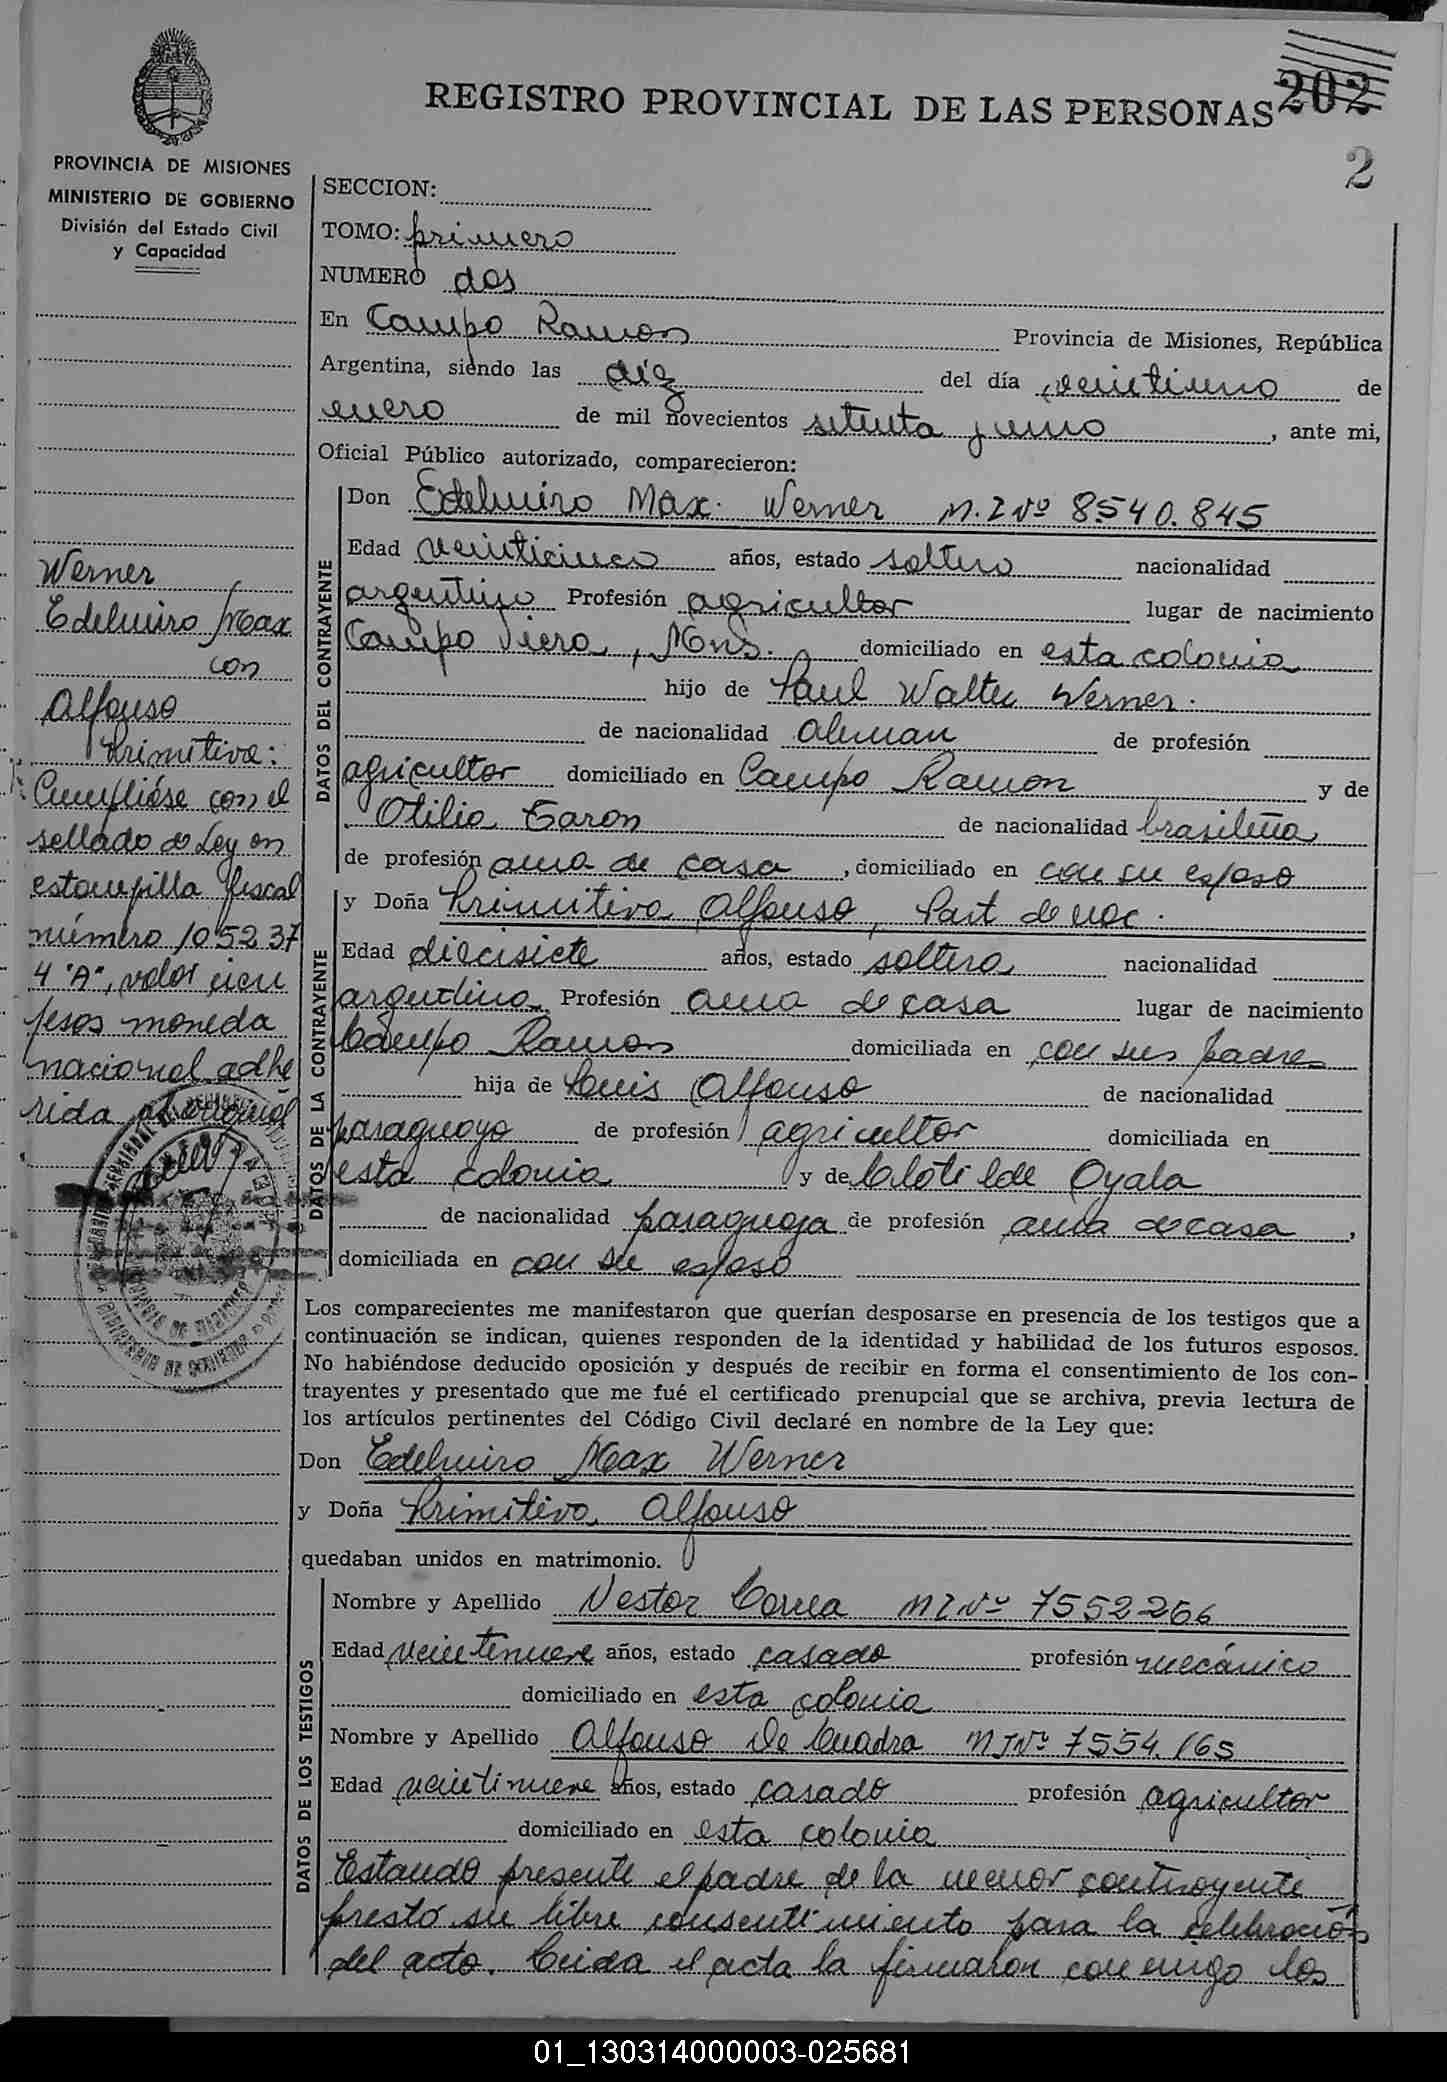 202
REGISTRO PROVINCIAL DE LAS PERSONAS
2
PROVINCIA DE MISIONES
MINISTERIO DE GOBIERNO
División del Estado Civil
y Capacidad
Werner
Edelmiro Max
con
Alfonso
Primitiva:
Cumplióse con el
sellado de Ley en
estampilla fiscal
número 105237
4 "A", valor cien
pesos moneda
nacional adhe
rida al original
SECCION:
TOMO: primero
NUMERO dos
En Campo Ramon Provincia de Misiones, República
Argentina, siendo las diez del día veintiuno de
enero de mil novecientos setenta y uno, ante mi,
Oficial Público autorizado, comparecieron:
DATOS DEL CONTRAYENTE
Don Edelmiro Max. Werner M.I Nº 8540.845
Edad veinticinco años, estado soltero nacionalidad
argentino Profesión agricultor lugar de nacimiento
Campo Viera, Mns. domiciliado en esta colonia
hijo de Paul Walter Werner.
de nacionalidad aleman de profesión
agricultor domiciliado en Campo Ramon y de
Otilia Garon de nacionalidad brasileña
de profesión ama de casa, domiciliado en con su esposo
DATOS DE LA CONTRAYENTE
y Doña Primitiva Alfonso, Part de nac.
Edad diecisiete años, estado soltera nacionalidad
argentina Profesión ama de casa lugar de nacimiento
Campo Ramon domiciliada en con sus padres
hija de Luis Alfonso de nacionalidad
paraguayo de profesión agricultor domiciliada en
esta colonia y de Clotilde Oyala
de nacionalidad paraguaya de profesión ama de casa,
domiciliada en con su esposo
Los comparecientes me manifestaron que querían desposarse en presencia de los testigos que a
continuación se indican, quienes responden de la identidad y habilidad de los futuros esposos.
No habiéndose deducido oposición y después de recibir en forma el consentimiento de los con-
trayentes y presentado que me fué el certificado prenupcial que se archiva, previa lectura de
los artículos pertinentes del Código Civil declaré en nombre de la Ley que:
Don Edelmiro Max Werner
y Doña Primitiva Alfonso
quedaban unidos en matrimonio.
DATOS DE LOS TESTIGOS
Nombre y Apellido Nestor Correa MI Nº 7552266
Edad veintenueve años, estado casado profesión mecánico
domiciliado en esta colonia
Nombre y Apellido Alfonso De Cuadra MI Nº 7554.165
Edad veintinueve años, estado casado profesión agricultor
domiciliado en esta colonia
Estando presente el padre de la menor contrayente
presto su libre consentimiento para la celebración
del acto. Leida el acta la firmaron conmigo los
01_130314000003-025681